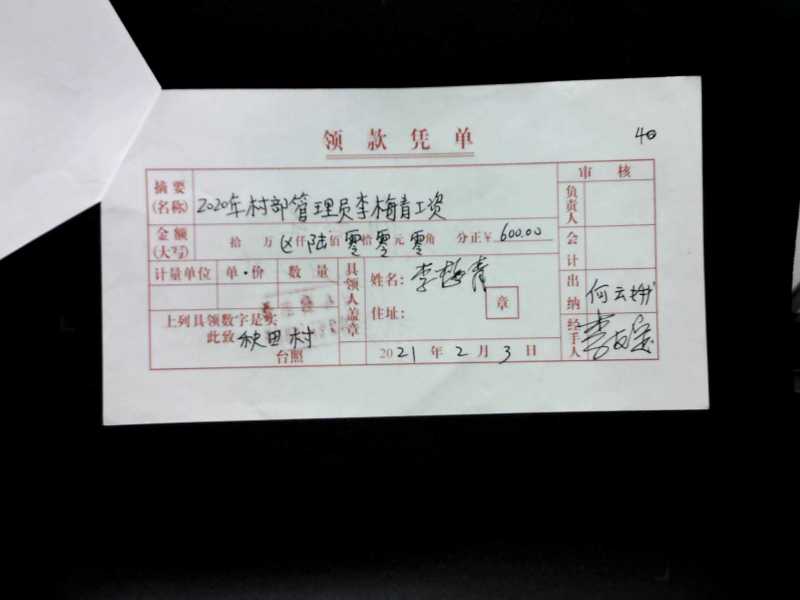 领款凭单
40
摘要(名称) 2020年村部管理员李梅青工资
审核
负责人
金额(大写) 拾万⊗仟陆佰零拾零元零角分正¥600.00
会计
计量单位 单·价 数量
具领人盖章
姓名:李梅青
住址:
章
出纳 何云
上列具领数字是实
此致 秋田村
台照
2021年2月3日
经手人 李